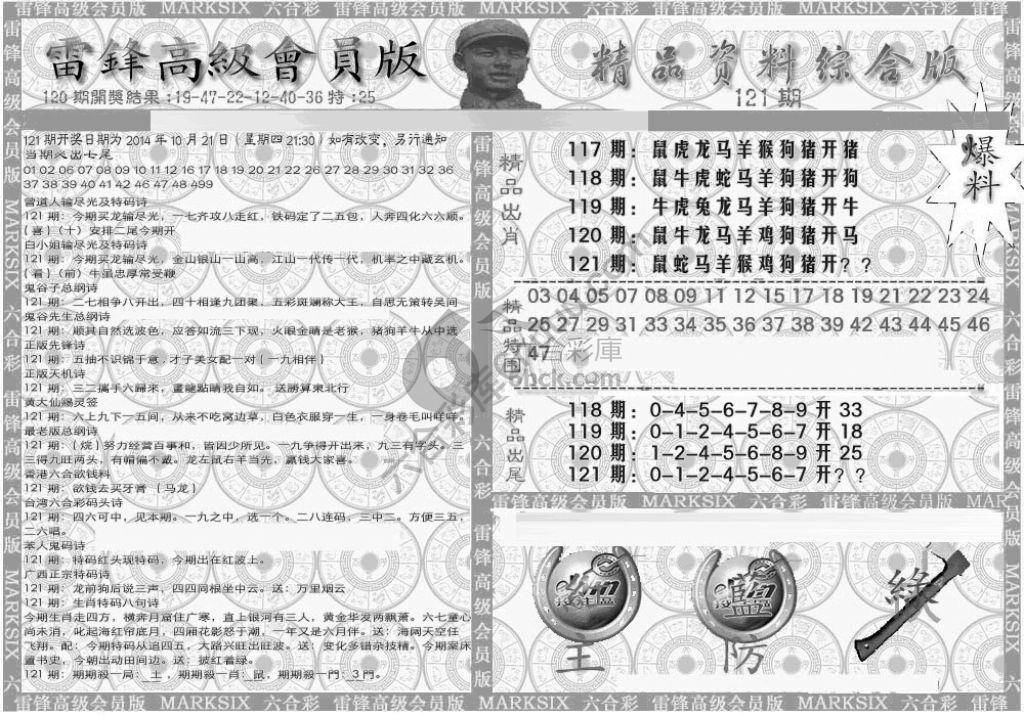 雷锋高级会员版 MARKSIX 六合彩 雷锋高级会员版 MARKSIX 六合彩 雷锋高级会员版 MARKSIX 六合彩 雷锋
雷鋒高級會員版
精品资料综合版
120期開獎結果:19-47-22-12-40-36特:25
121期
爆料
121期开奖日期为2014年10月21日(星期四21:30)如有改变，另行通知
当期必出七尾
01 02 06 07 08 09 10 11 12 16 17 18 19 20 21 22 26 27 28 29 30 31 32 36
37 38 39 40 41 42 46 47 48 499
曾道人输尽光及特码诗
121期：今期买龙输尽光，一七齐攻八走红，铁码定了二五包，人奔四化六六顺。
(喜)(十)安排二尾今期开
白小姐输尽光及特码诗
121期：今期买龙输尽光，金山银山一山高，江山一代传一代，机率之中藏玄机。
(看)(前)牛虽忠厚常受鞭
鬼谷子总纲诗
121期：二七相争八开出，四十相逢九团聚，五彩斑斓称大王，自思无策转吴间
鬼谷先生总纲诗
121期：顺其自然选波色，应答如流三下现，火眼金睛是老猴，猪狗羊牛从中选
正版先锋诗
121期：五抽不识锦于意，才子美女配一对(一九相伴)
正版天机诗
121期：三二攜手六歸來，畫龍點睛我自如。送勝算東北行
黄大仙赐灵签
121期：六上九下一五间，从来不吃窝边草，白色衣服穿一生，一身卷毛叫咩咩。
最老版总纲诗
121期：(烷)努力经营百事和，皆因少所见。一九争得开出来，九三有字头。三
三得九旺两头，有帽偏不戴。龙左鼠右羊当先，赢钱大家喜。
香港六合欲钱料
121期：欲钱去买牙膏 (马龙)
台湾六合彩码头诗
121期：四六可中，见本期。一九之中，选一个。二八连码，三中二。方便三五，
二六唱。
本人鬼码诗
121期：特码红头现特码，今期出在红波上。
广西正宗特码诗
121期：龙前狗后说三声，四四同根坐中云。送：万里烟云
121期：生肖特码八句诗
今期生肖走四方，横奔月窟住广寒，直上银河有三人，黄金华发两飘萧。六七童心
尚未消，叱起海红帘底月，四厢花影怒于潮，一年又是六月伴。送：海阔天空任
飞翔。配：今期特码从追四五，大路兴旺出旺波。送：变化多错杂技精。今期案床
置书史，今朝出动田间边。送：披红着绿。
121期：期期殺一局：土，期期殺一肖：鼠，期期殺一門：3門。
精品出肖
117期：鼠虎龙马羊猴狗猪开猪
118期：鼠牛虎蛇马羊狗猪开狗
119期：牛虎兔龙马羊狗猪开牛
120期：鼠牛龙马羊鸡狗猪开马
121期：鼠蛇马羊猴鸡狗猪开？？
精品特围
03 04 05 07 08 09 11 12 15 16 18 19 21 22 23 24
25 27 29 31 33 34 35 36 37 38 39 42 43 44 45 46
47
彩庫
6hck.com
精品出尾
118期：0-4-5-6-7-8-9开33
119期：0-1-2-4-5-6-7开18
120期：1-2-4-5-6-8-9开25
121期：0-1-2-4-5-6-7开？？
雷锋高级会员版 MARKSIX 六合彩 雷锋高级会员版 MAR
藍
綠
主
防
雷锋高级会员版 MARKSIX 六合彩 雷锋高级会员版 MARKSIX 六合彩 雷锋高级会员版 MARKSIX 六合彩 雷锋